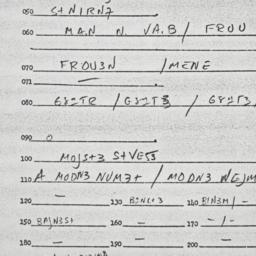 050 S+NIRN7
060 MAN N. VA.B / FROU
070 FROU3N /MENE
071 —
080 G8ITR /G8IT3 / G8IT3
090 O
100 MOJS+3 S+VE53
110 A MODN3 NUM3+ / MODN3 WEJM
120 — 130 140 BIN3M / -
150 BAJN3S+ 160 — 170 - / -
180 — 190 — 200 —